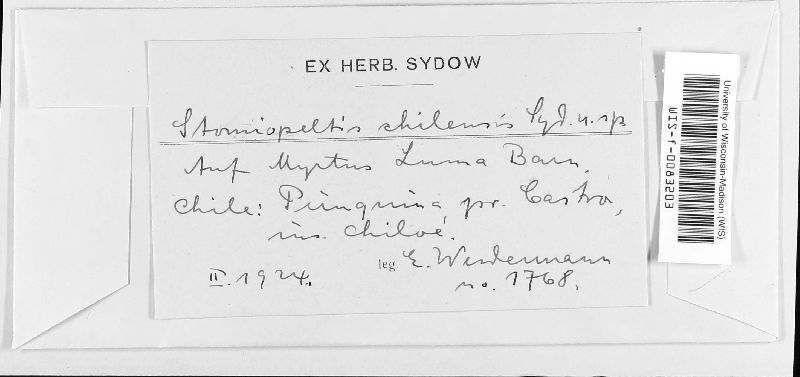 EX HERB. SYDOW
Stomiopeltis chilensis Syd. n. sp
Auf Myrtus Luma Barn.
Chile: Punquina pr. Castro,
ins. Chiloé.
leg. E. Werdermann
II. 1924.
no. 1768.
University of Wisconsin-Madison (WIS)
WIS-f-0083203